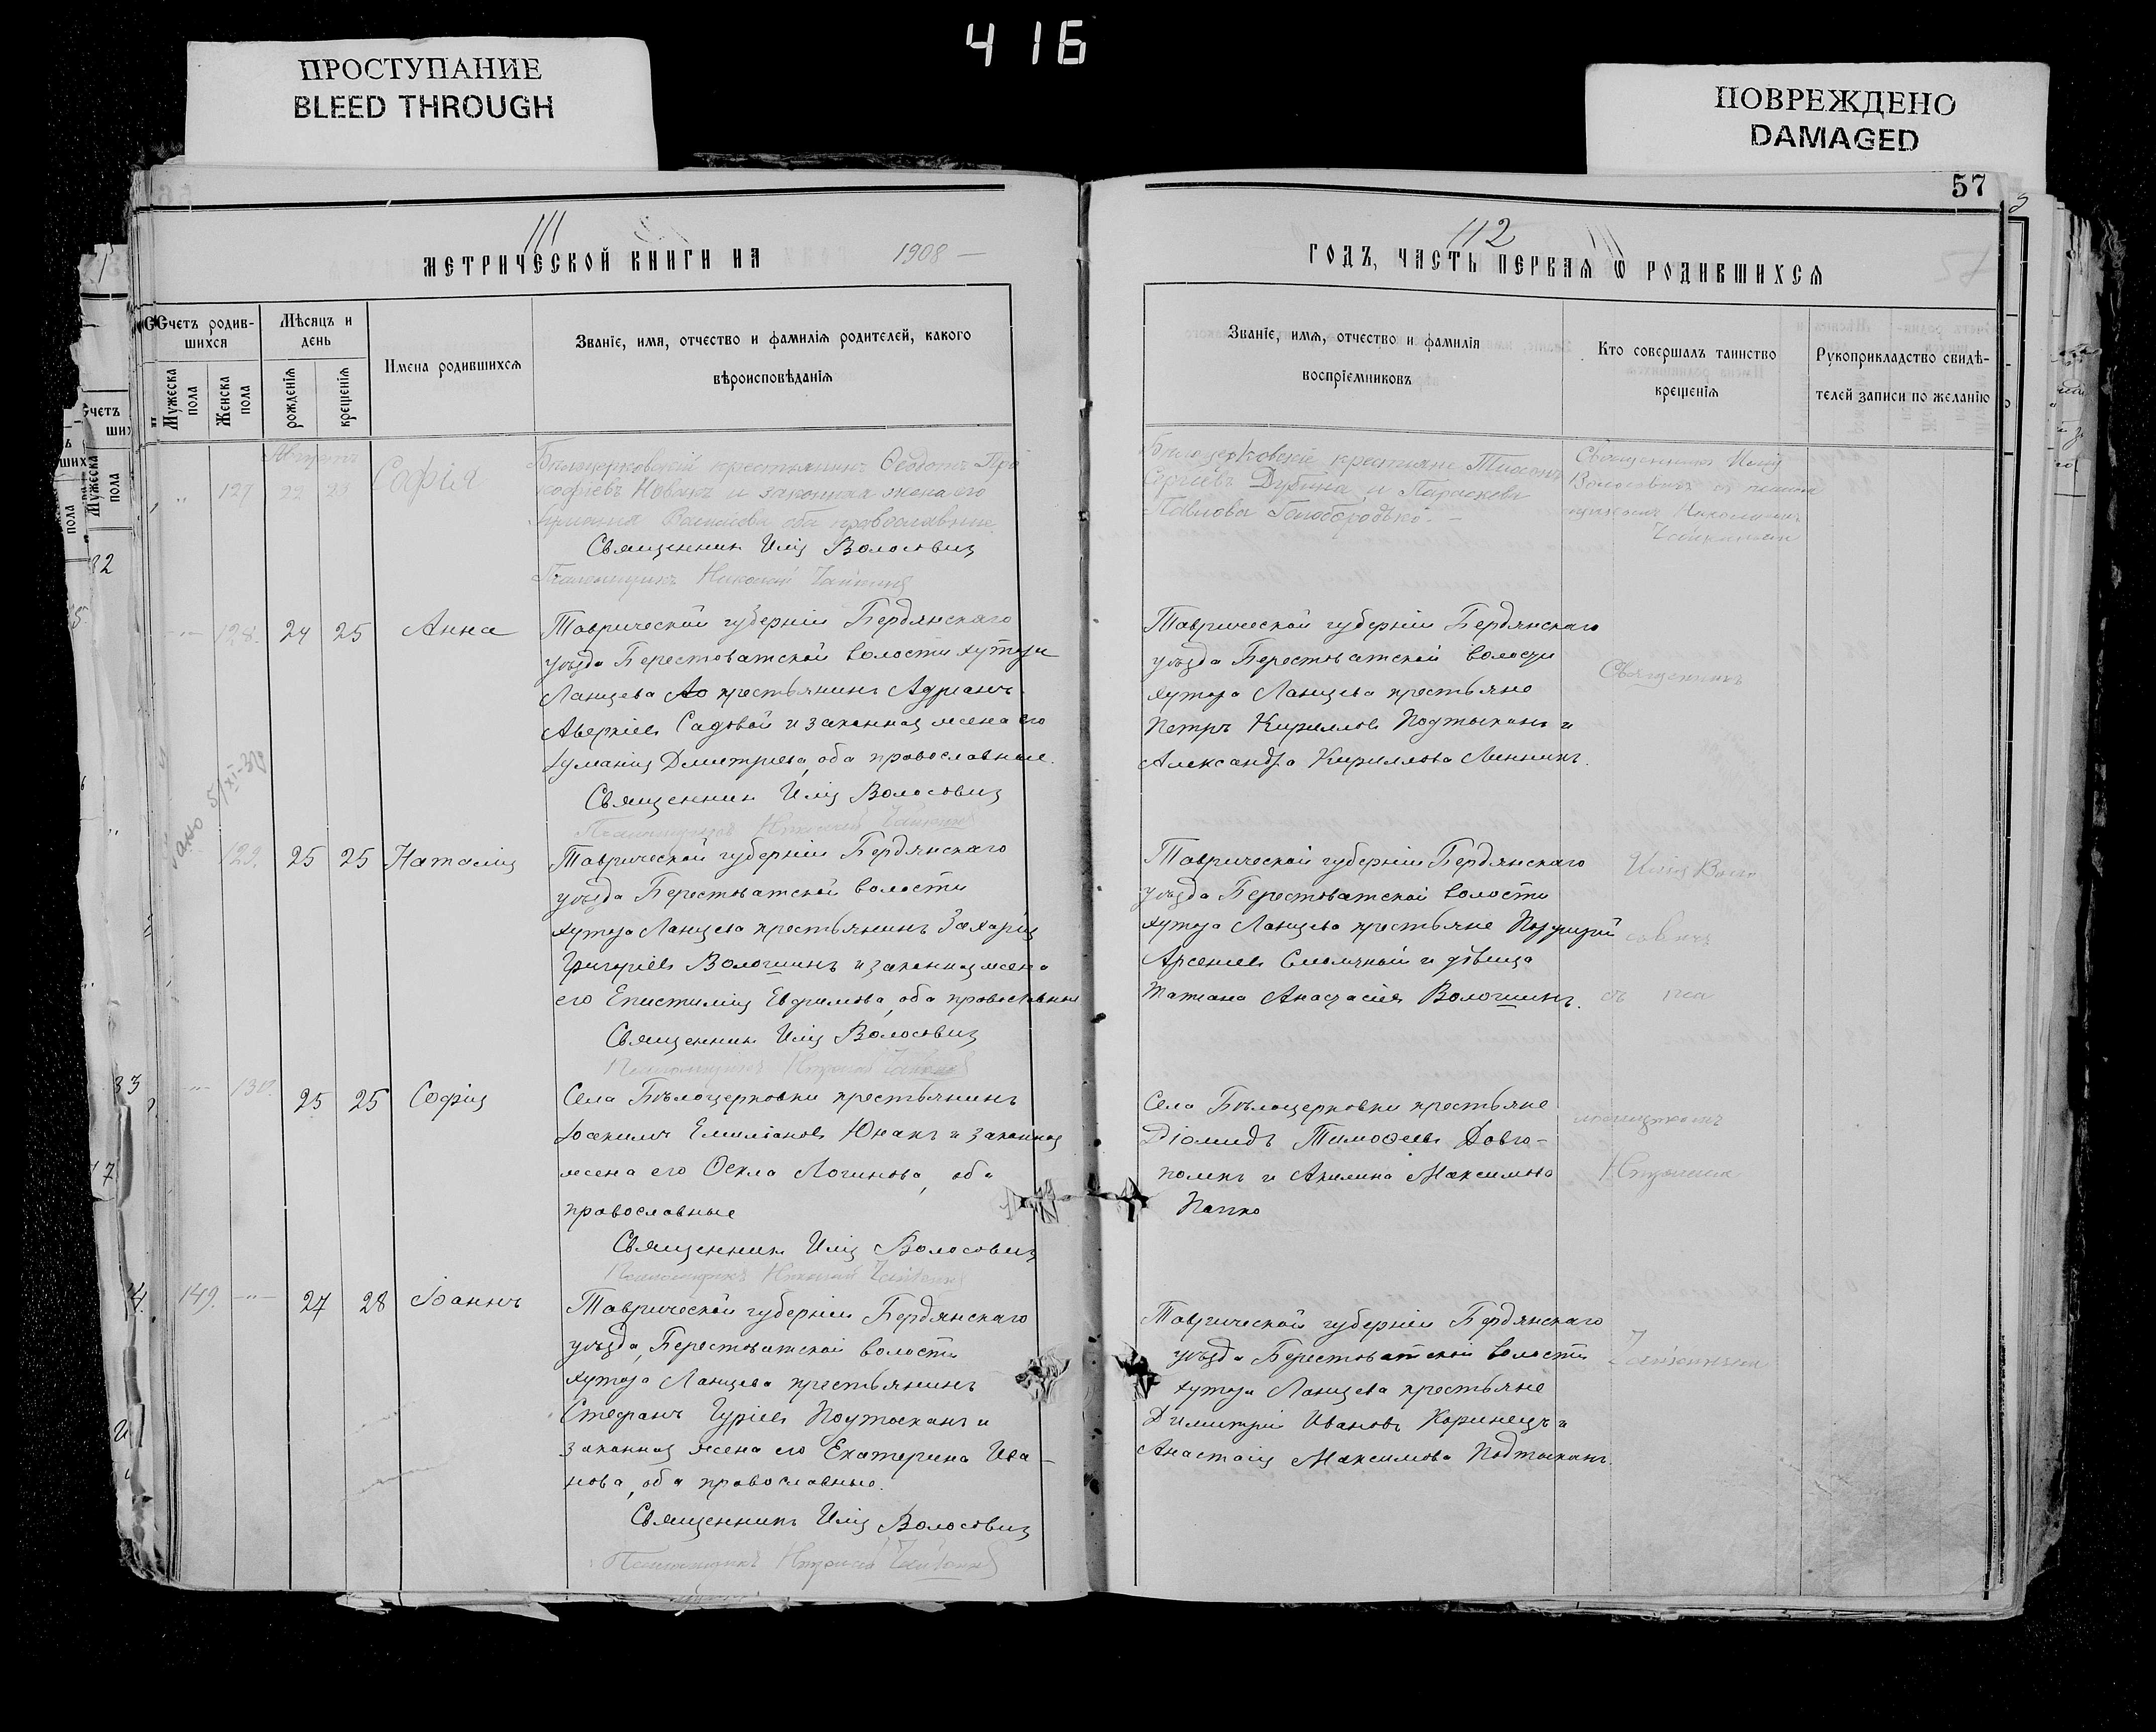 416
ПРОСТУПАНИЕ
BLEED THROUGH
ПОВРЕЖДЕНО
DAMAGED
57
111
112
МЕТРИЧЕСКОЙ КНИГИ НА 1908
ГОДЪ, ЧАСТЬ ПЕРВАЯ Ѡ РОДИВШИХСЯ
Счетъ родив-
шихся
Мѣсяцъ и
день
Имена родившихся
Званіе, имя, отчество и фамилія родителей, какого
вѣроисповѣданія
Мужеска
пола
Женска
пола
рожденія
крещенія
Званіе, имя, отчество и фамилія
воспріемниковъ
Кто совершалъ таинство
крещенія
Рукоприкладство свидѣ-
телей записи по желанію
Августъ
127 22 23 Софія
крестьянинъ Ѳеодотъ Про
кофіевъ Новакъ и законная жена его
оба православные
Священникъ Илія Волосовичъ
Псаломщикъ Николай
крестьяне
Сергіевъ и Параскева
Павлова
Священникъ Илія
Волосовичъ съ псалом
щикомъ Николаемъ
128. 24 25 Анна
Таврической губерніи Бердянскаго
уѣзда Берестоватской волости хутора
Ланцева крестьянинъ Адріанъ
Аверкіевъ Садовой и законная жена его
Іуліанія Димитріева, оба православные.
Священникъ Илія Волосовичъ
Псаломщикъ Николай
Таврической губерніи Бердянскаго
уѣзда Берестоватской волости
хутора Ланцева крестьяне
Петръ Кирилловъ Подтыканъ и
Александра Кириллова Линникъ.
Священникъ
129. 25 25 Наталія
Таврической губерніи Бердянскаго
уѣзда Берестоватской волости
хутора Ланцева крестьянинъ Захарія
Григоріевъ Волошинъ и законная жена
его Епистимія Евфимова, оба православные
Священникъ Илія Волосовичъ
Псаломщикъ Николай
Таврической губерніи Бердянскаго
уѣзда Берестоватской волости
хутора Ланцева крестьяне Порфирій
Арсеніевъ и дѣвица
Татіана Анастасіева Волошинъ.
Илія Воло
совичъ
съ пса
130. 25 25 Софія
Села Бѣлоцерковки крестьянинъ
Іоакимъ Емиліановъ Юнакъ и законная
жена его Ѳекла Логинова, оба
православные
Священникъ Илія Волосовичъ
Псаломщикъ Николай
Села Бѣлоцерковки крестьяне
Діомидъ Тимоѳеевъ Довго-
полъ и Акилина Максимова
Папко
ломщикомъ
Николаемъ
149. 27 28 Іоаннъ
Таврической губерніи Бердянскаго
уѣзда, Берестоватской волости
хутора Ланцева крестьянинъ
Стефанъ Гуріевъ Подтыканъ и
законная жена его Екатерина Ива-
нова, оба православные.
Священникъ Илія Волосовичъ
Псаломщикъ Николай
Таврической губерніи Бердянскаго
уѣзда Берестоватской волости
хутора Ланцева крестьяне
Димитрій Ивановъ Коринецъ и
Анастасія Максимова Подтыканъ.